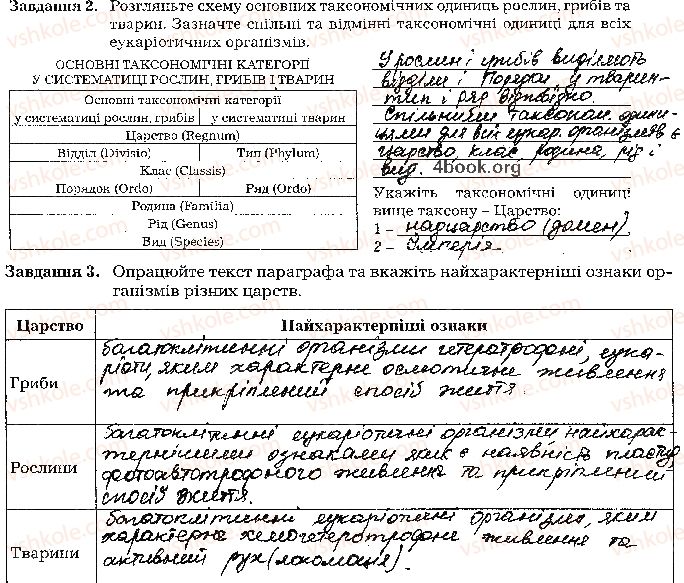 Завдання 2. Розгляньте схему основних таксономічних одиниць рослин, грибів та
тварин. Зазначте спільні та відмінні таксономічні одиниці для всіх
еукаріотичних організмів.
ОСНОВНІ ТАКСОНОМІЧНІ КАТЕГОРІЇ
У СИСТЕМАТИЦІ РОСЛИН, ГРИБІВ І ТВАРИН
Основні таксономічні категорії
у систематиці рослин, грибів у систематиці тварин
Царство (Regnum)
Відділ (Divisio) Тип (Phylum)
Клас (Classis)
Порядок (Ordo) Ряд (Ordo)
Родина (Familia)
Рід (Genus)
Вид (Species)
У рослин і грибів виділяють
відділи і порядки у тварин-
тип і ряд відповідно.
Спільними таксоном. одини-
цями для всіх еукар. організмів є
царство, клас, родина, рід і
вид. 4book.org
Укажіть таксономічні одиниці
вище таксону – Царство:
1 – надцарство (домен),
2 – Імперія
Завдання 3. Опрацюйте текст параграфа та вкажіть найхарактерніші ознаки ор-
ганізмів різних царств.
Царство Найхарактерніші ознаки
багатоклітинні організми гетеротрофні, еука-
Гриби ріоти, яким характерне осмотичне живлення
та прикріплений спосіб життя.
багатоклітинні еукаріотичні організми найхарак-
тернішими ознаками яких є наявність пластид
Рослини фотоавтотрофного живлення та прикріплений
спосіб життя.
багатоклітинні еукаріотичні організми, яким
характерне хемогетеротрофне живлення та
Тварини активний рух (локомація).
vshkole.com